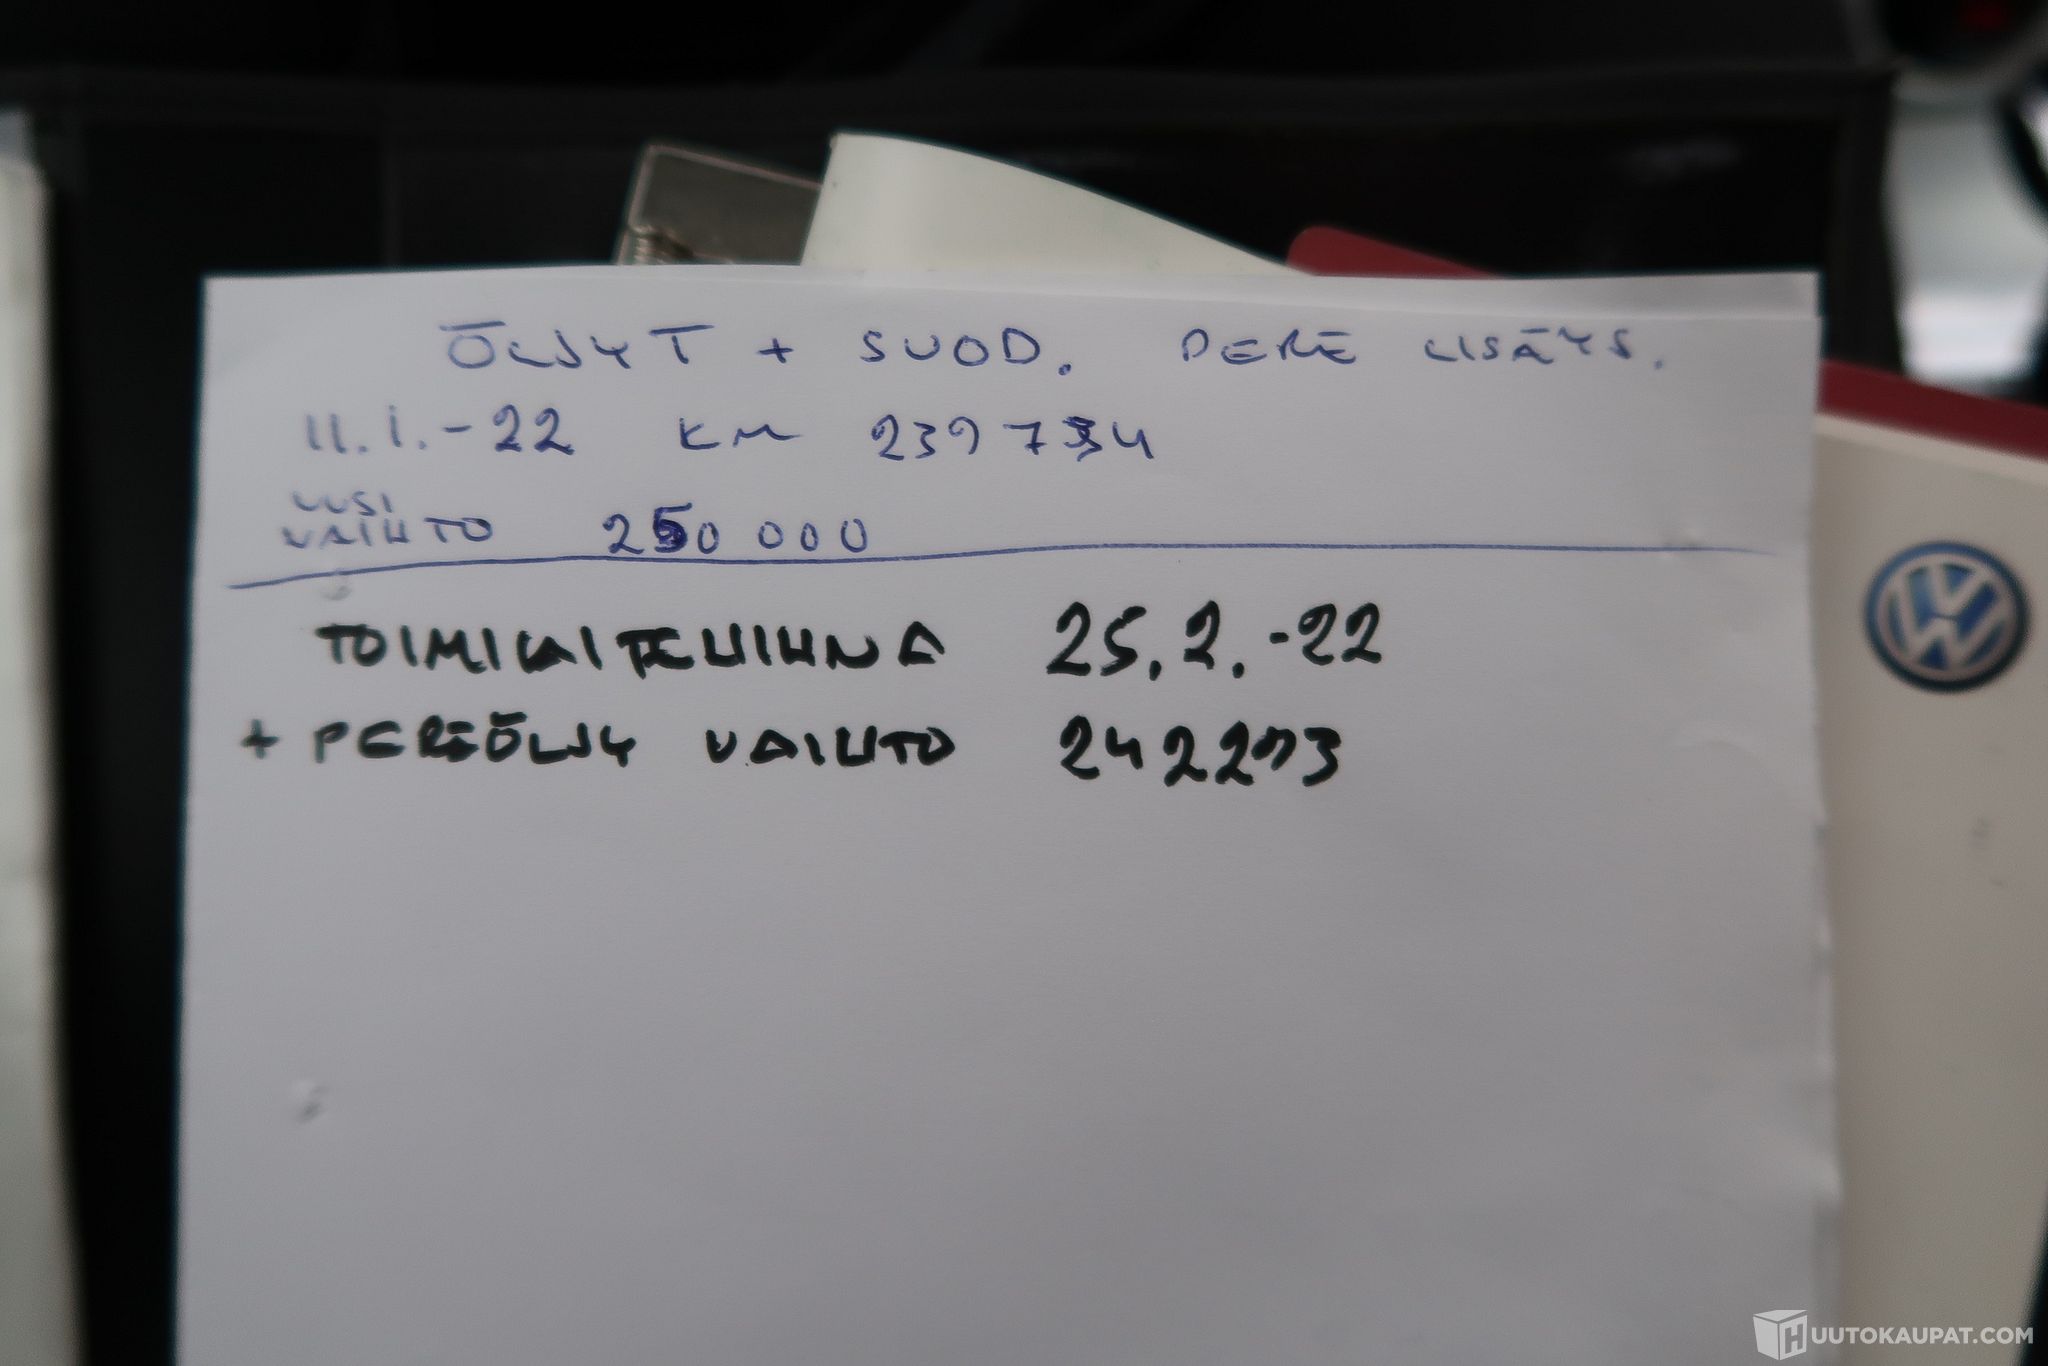 ÖLJYT + SUOD. PERÄ LISÄYS.
11.1.-22 KM 239734
UUSI
VAIHTO 250 000
TOIMILAITEHIHNA 25.2.-22
+ PERÄÖLJY VAIHTO 242273
VW
HUUTOKAUPAT.COM